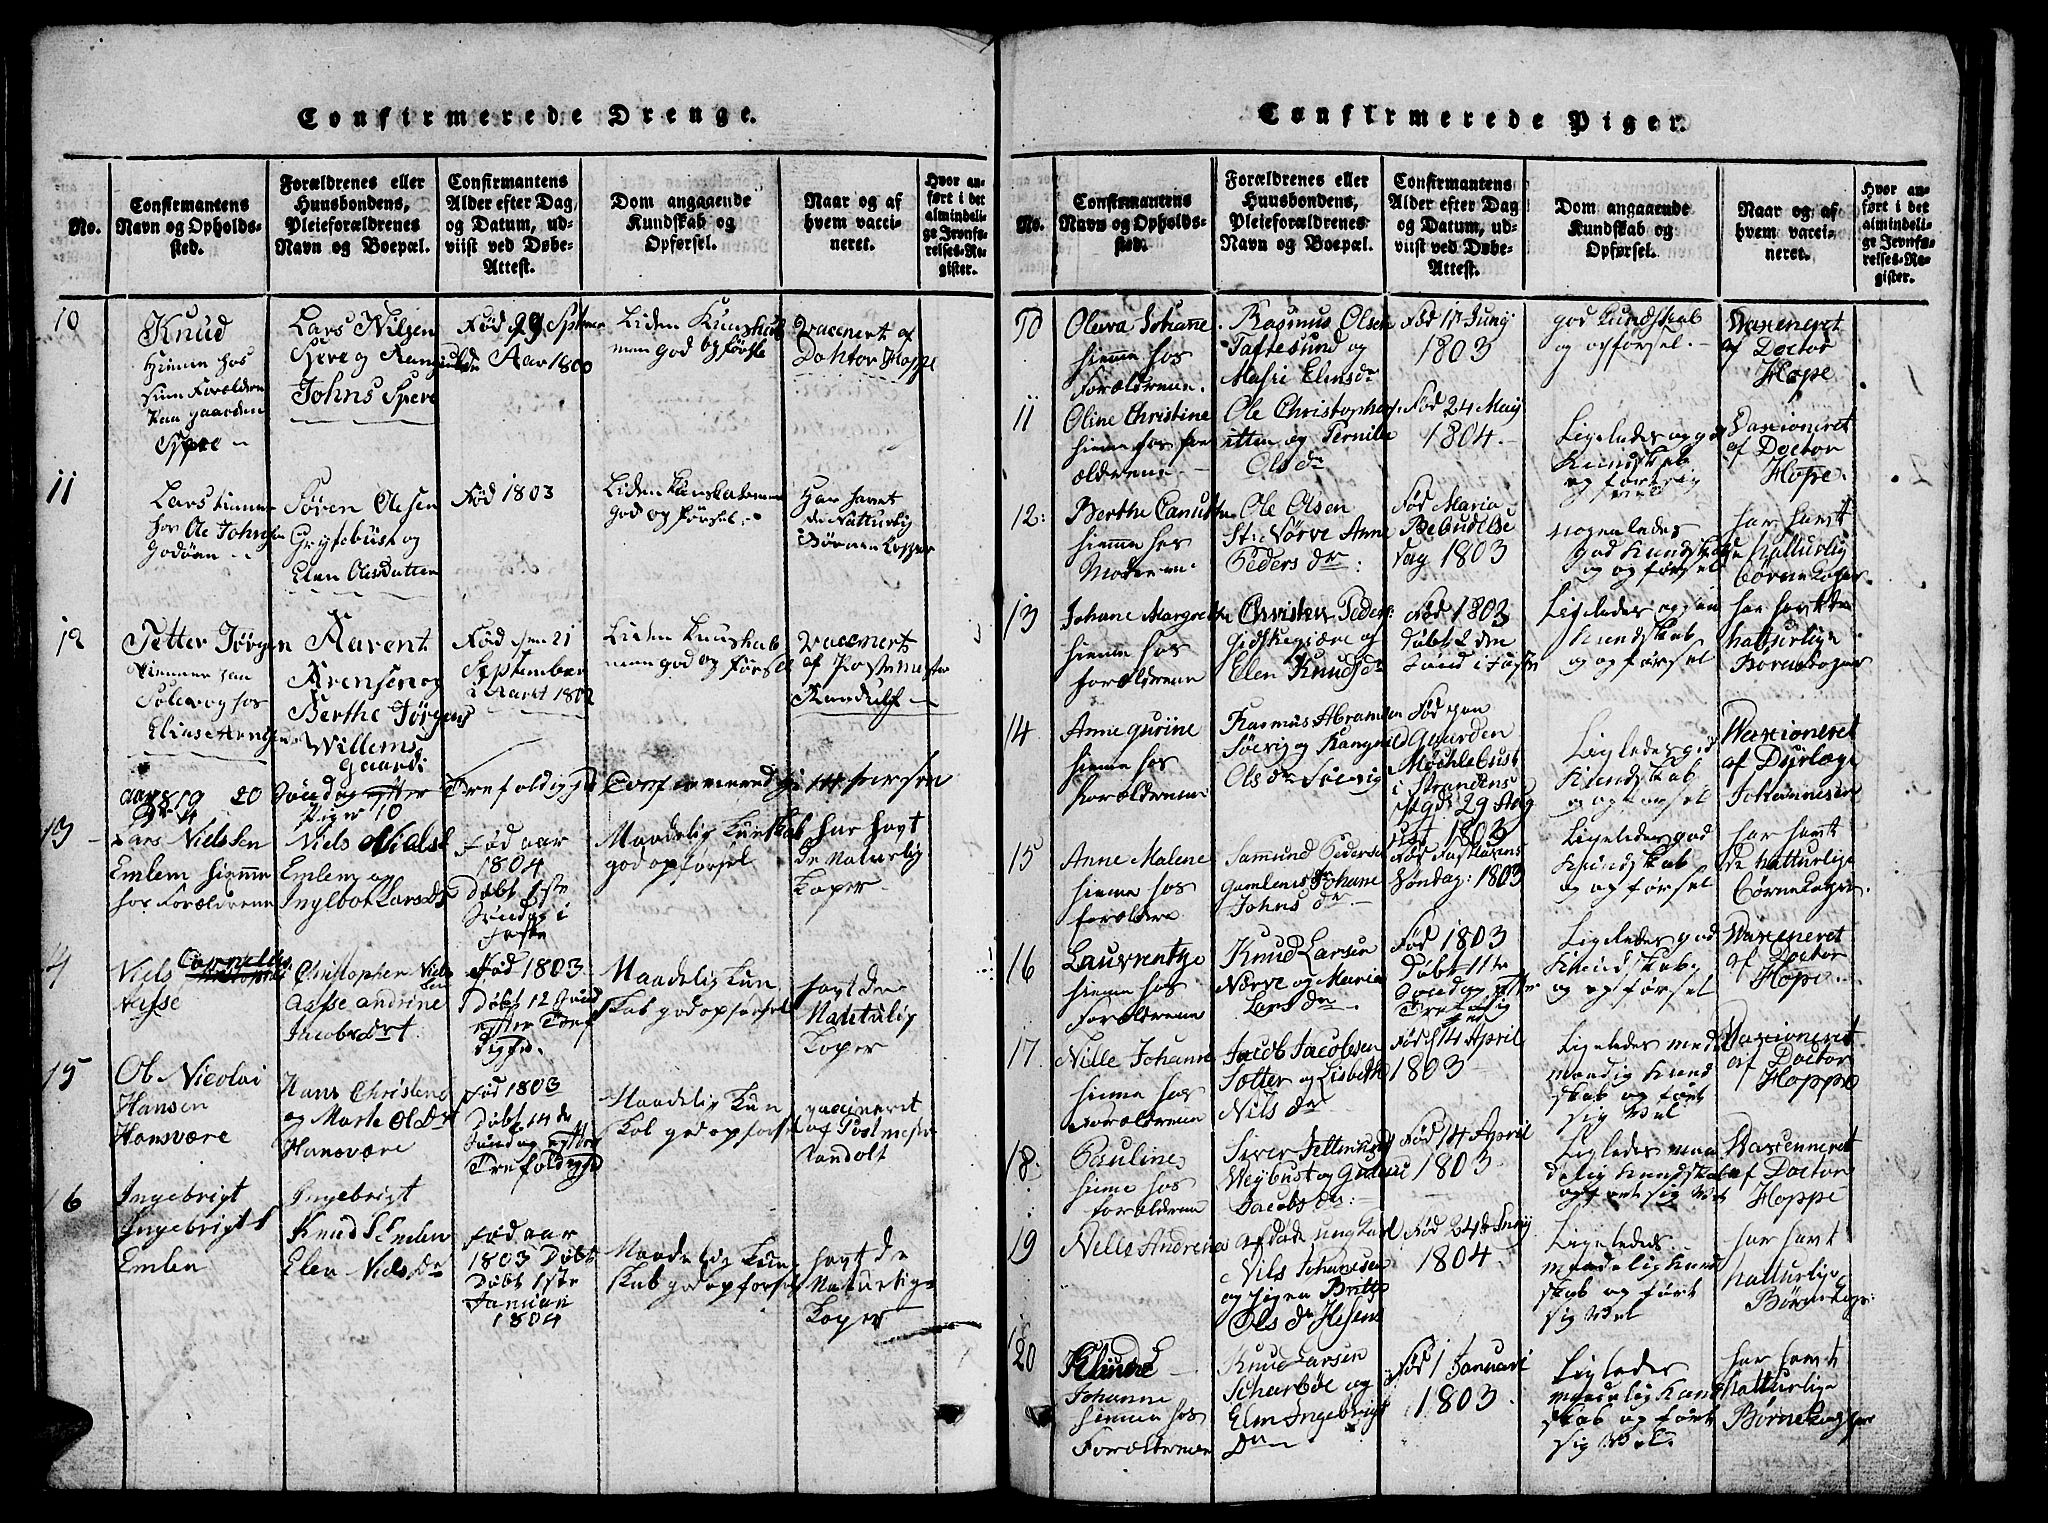 Confirmerede Drenge.
No.
Confirmantens
Navn og Opholds-
sted.
Forældrenes eller
Huusbondens,
Pleieforældrenes
Navn og Boepæl.
Confirmantens
Alder efter Dag
og Datum, ud-
viist ved Døbe-
Attest.
Dom angaaende
Kundskab og
Opførsel.
Naar og af
hvem vacci-
neret.
Hvor an-
ført i det
almindeli-
ge Jevnfø-
relses-Re-
gister.
10
Knud
hiemme hos
sine Forældre
Paa gaarden
Spere
Lars Nilsen
Spere og
Johns Spere
Fød 29 Sptmr
Aar 1800
Liden Kunskab
men god opførsle
vaccenert af
Doktor Hoppe
11
Lars hiemme
hos Ole Johnsen
Godøen
Søren Olesen
Grytebust og
Elen Olesdatter
Fød 1803
Liden
god opførsel
Har havt
de Natturlig
Børnne Kopper
12
Petter Jørgen
hiemme paa
Solevog hos
Elias Arensen
Aarent
Arensen og
Berthe Jørgens
Willems
gaard
Fød den 21
September
i Aaret 1802
Liden Kunskab
men god opførsel
vaccenert
af Postmester
Randulf
aar 1819 20 Søndag efter Trefoldighed Confirmered
Piger 10
13
Lars Nielssen
Emlem hiemme
hos Forældrene
Niels Niels
Emlem og
Inglbor Larsdt
Fød aar
1804
Døbt 1ste
Søndag i
Faste
Maadelig Kunskab
god opførsel
har havt
de Naturlig
Koper
14
Niels Cornelius
Aasse
Christopher Niels
sen
Aasse andrine
Jacobsdrt
Fød 1803
Døbt 12 Sønd
efter Tref
digh.
Maadelig Kun
skab god opførsel
havt den
Naturlig
Koper
15
Ole Nicolai
Hansen
Hansvære
Hans Christens
og Marte Olsdrt
Hansvære
Fød 1803
Døbt 14 de
Søndag efter
Trefoldighed
Maadelig Kun
skab god opførsel
vaccineret
af Postmester
Randolt
16
Ingebrigt
Ingebrigts
Emlen
Ingebrigt
Knuds Emlen
Elen Niels Dr
Fød aar
1803 Døbt
Døbt 1ste
Januari
1804
Maadelig Kun
skab god opførsel
havt de
Naturlige
Koper
Confirmerede Piger.
No.
Confirmantens
Navn og Opholds-
sted.
Forældrenes eller
Huusbondens,
Pleieforældrenes
Navn og Boepæl.
Confirmantens
Alder efter Dag
og Datum, ud-
viist ved Døbe-
Attest.
Dom angaaende
Kundskab og
Opførsel.
Naar og af
hvem vacci-
neret.
Hvor an-
ført i det
almindeli-
ge Jevnfø-
relses-Re-
gister.
10
Oleva Johanne
hiemme hos
forældrenne.
Rasmus Olsen
Taftesund og
Mari Elinsdr
Fød 11 Juny
1803
god kundskab
og opførsel.
Waxineret
af Doctor
Hope
11
Oline Christine
hiemme hos for
ældrenne
Ole Christophers
og Pernille
Ols dr
Fød 24 May
1804.
Ligeledes og god
Kundskab
og førte sig
vel
Waxioneret
af Doctor
Hope.
12:
Berthe Canutte
hiemme hos
Moderen
Ole Olsen
St: Nørve Anne
Peders dr:
Fød Maria
Bebudelse
dag 1803
nogenledes
god Kundskab
og opførsel
har havt
de natturlig
Børne Koper.
13
Johane Margrethe
hiemme hos
forældrenne
Christen Peders:
Gidskegiære og
Elen Knuds dr
Fød 1803
Døbt 2 den
Sønd i Faste
Ligeledes
Kundskab
og opførsel
har havt de
natturlige
Børne Koper
14
Anne gurine
hiemme hos
forældrenne
Rasmus Abramsen
Søevig og Rangnild
Ols dr Søevig
Fød paa
Gaarden
Møchlebust
i Strandens
Prstgd: 29 Aug
ust 1803
Ligeledes god
Kundskab
og opførsel
Waxioneret
af Dyrlæge
Johannesen
15
Anne Malene
hiemme hos
foreldre
Sammund Peders
Gamlem Johane
Johns dr
Fød Fastlavns
Søndag: 1803
Ligeledes god
Kundskab
og opførsel
har havt
de natturlige
Børne Koper.
16
Laurentze
hiemme hos
forældrenne
Knud Larsen
Nørve og Marie
Lars dr
Fød 1803
Døbt 11te
Søndag efter
Trefoldig
hed
Ligeledes god
Kundskab
og opførsel
Waxineret
af Doctor
Hope
17.
Nille Johanne
hiemme hos
forældrenne
Jacob Jacobsen
Sotter og Lisbeth
Nils dr
Fød 14 April
1803
Ligeledes med
maadig Kund
skab og ført
sig Vel
Waxioneret
af Doctor
Hoppe
18.
Pauline
hiemme hos
forældrenne
Siver
Weybust og
Jacobs dr:
Fød 14 April
1803
Ligledes maa
delig Kundskab
og føret sig Vel
Waxenneret
af Doctor
Hoppe
19
Nille Andrena
afdøde ungkarl
Nils Johansen
og pigen Britte
Ols dr Hesen
Fød 24 de Juny
1804
Ligeledes
maadelig Kund
skab og ført
sig Vel
har havt
natturlige
Børne Kop:
20
Johanne
hiemme hos
Foreldrenne
Knud Larsen
Scharbøe og
Elen Ingebrigt
Dr
Fød 1 Januari
1803
Ligledes
maadelig Kund
skab og ført
sig Vel.
har havt
natturlige
Børne Kopper